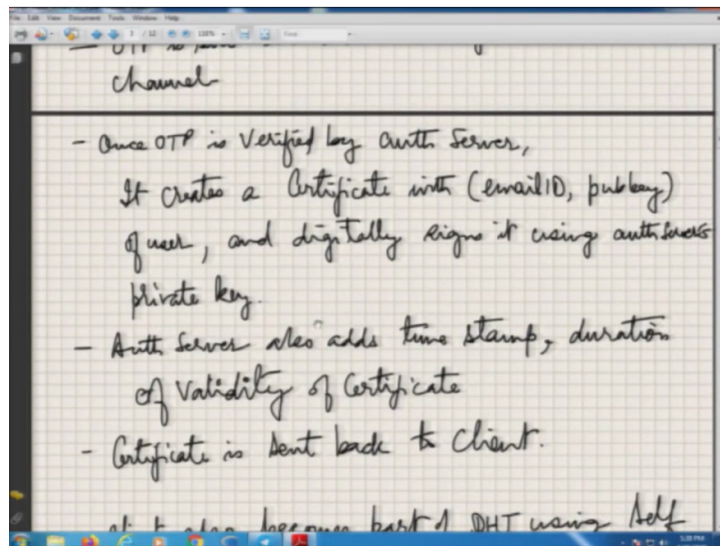 File Edit View Document Tools Window Help
3 / 12
Find
OTP is
channel
- Once OTP is Verified by auth Server,
It creates a Certificate with (emailID, pubkey)
of user, and digitally signs it using auth server's
private key.
- Auth Server also adds time stamp, duration
of Validity of Certificate
- Certificate is sent back to Client.
also become part of DHT using Self
5:28 PM